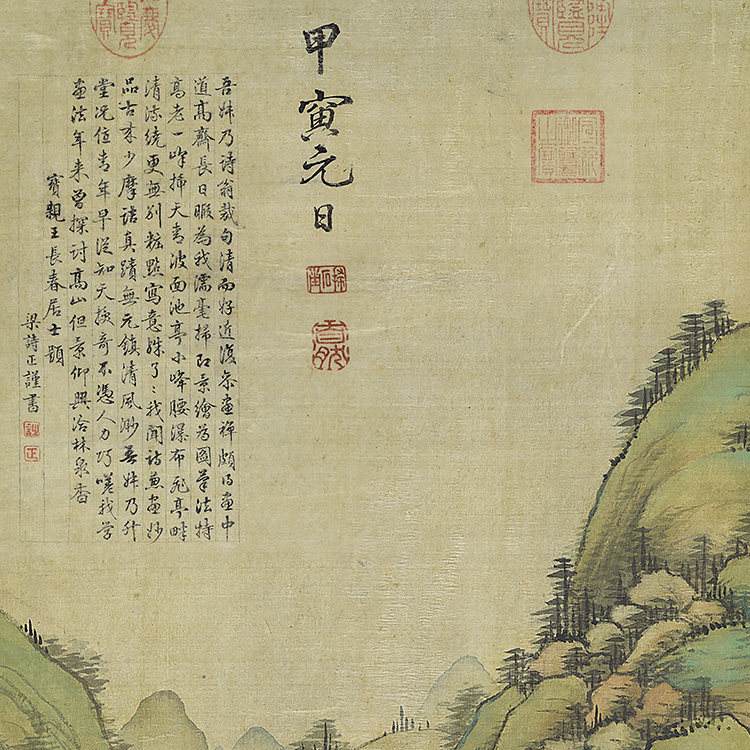 甲寅元日
吾叔乃詩翁裁句清而好近復參畫禪頗得畫中
道高齋長日暇為我濡毫掃即景繪為圖筆法特
高老一峰插天青波面池亭小峰腰瀑布飛亭畔
清流繞更無別粧點寫意殊了〻我聞詩兼畫妙
品古來少摩詰真蹟無元鎮清風渺吾叔乃升
堂況位青年早從知天授奇不憑人力巧嗟我学
畫法年來曾探討高山但景仰興洽林泉杳
寶親王長春居士題
梁詩正謹書